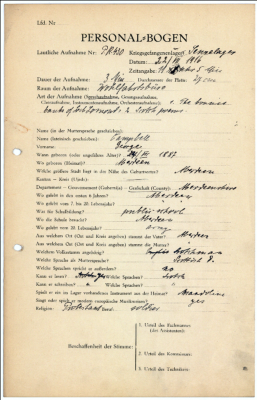 Lfd. Nr.
PERSONAL-BOGEN
Lautliche Aufnahme Nr.: PK430 Kriegsgefangenenlager Sennelager
Datum: 22/XI 1916
Zeitangabe: 5 Uhr
Dauer der Aufnahme: 3 Min Durchmesser der Platte: 27 cm
Raum der Aufnahme:
Art der Aufnahme (Sprechaufnahme, Gesangsaufnahme,
Choraufnahme, Instrumentenaufnahme, Orchesteraufnahme): The bonnie
banks of Loch Lomond 2 Scotch poems
Name (in der Muttersprache geschrieben):
Name (lateinisch geschrieben): Campbell
Vorname: George
Wann geboren (oder ungefähres Alter)? 1887
Wo geboren (Heimat)? Aberdeen
Welche größere Stadt liegt in der Nähe des Geburtsortes? Aberdeen
Kanton — Kreis (Ujedz):
Department — Gouvernement (Gubernija) — Grafschaft (County): Aberdeenshire
Wo gelebt in den ersten 6 Jahren? Aberdeen
Wo gelebt vom 7. bis 20. Lebensjahr?
Was für Schulbildung? public school
Wo die Schule besucht? Aberdeen
Wo gelebt vom 20. Lebensjahr? army
Aus welchem Ort (Ort und Kreis angeben) stammt der Vater? Aberdeen
Aus welchem Ort (Ort und Kreis angeben) stammt die Mutter?
Welchem Volksstamm angehörig? Scotchman
Welche Sprache als Muttersprache?
Welche Sprachen spricht er außerdem? no
Kann er lesen? Welche Sprachen?
Kann er schreiben? Welche Sprachen?
Spielt er ein im Lager vorhandenes Instrument aus der Heimat?
Singt oder spielt er moderne europäische Musikweisen? yes
Religion: Protestant Beruf: soldier
Beschaffenheit der Stimme:
1. Urteil des Fachmannes:
(des Assistenten):
2. Urteil des Kommissars:
3. Urteil des Technikers: